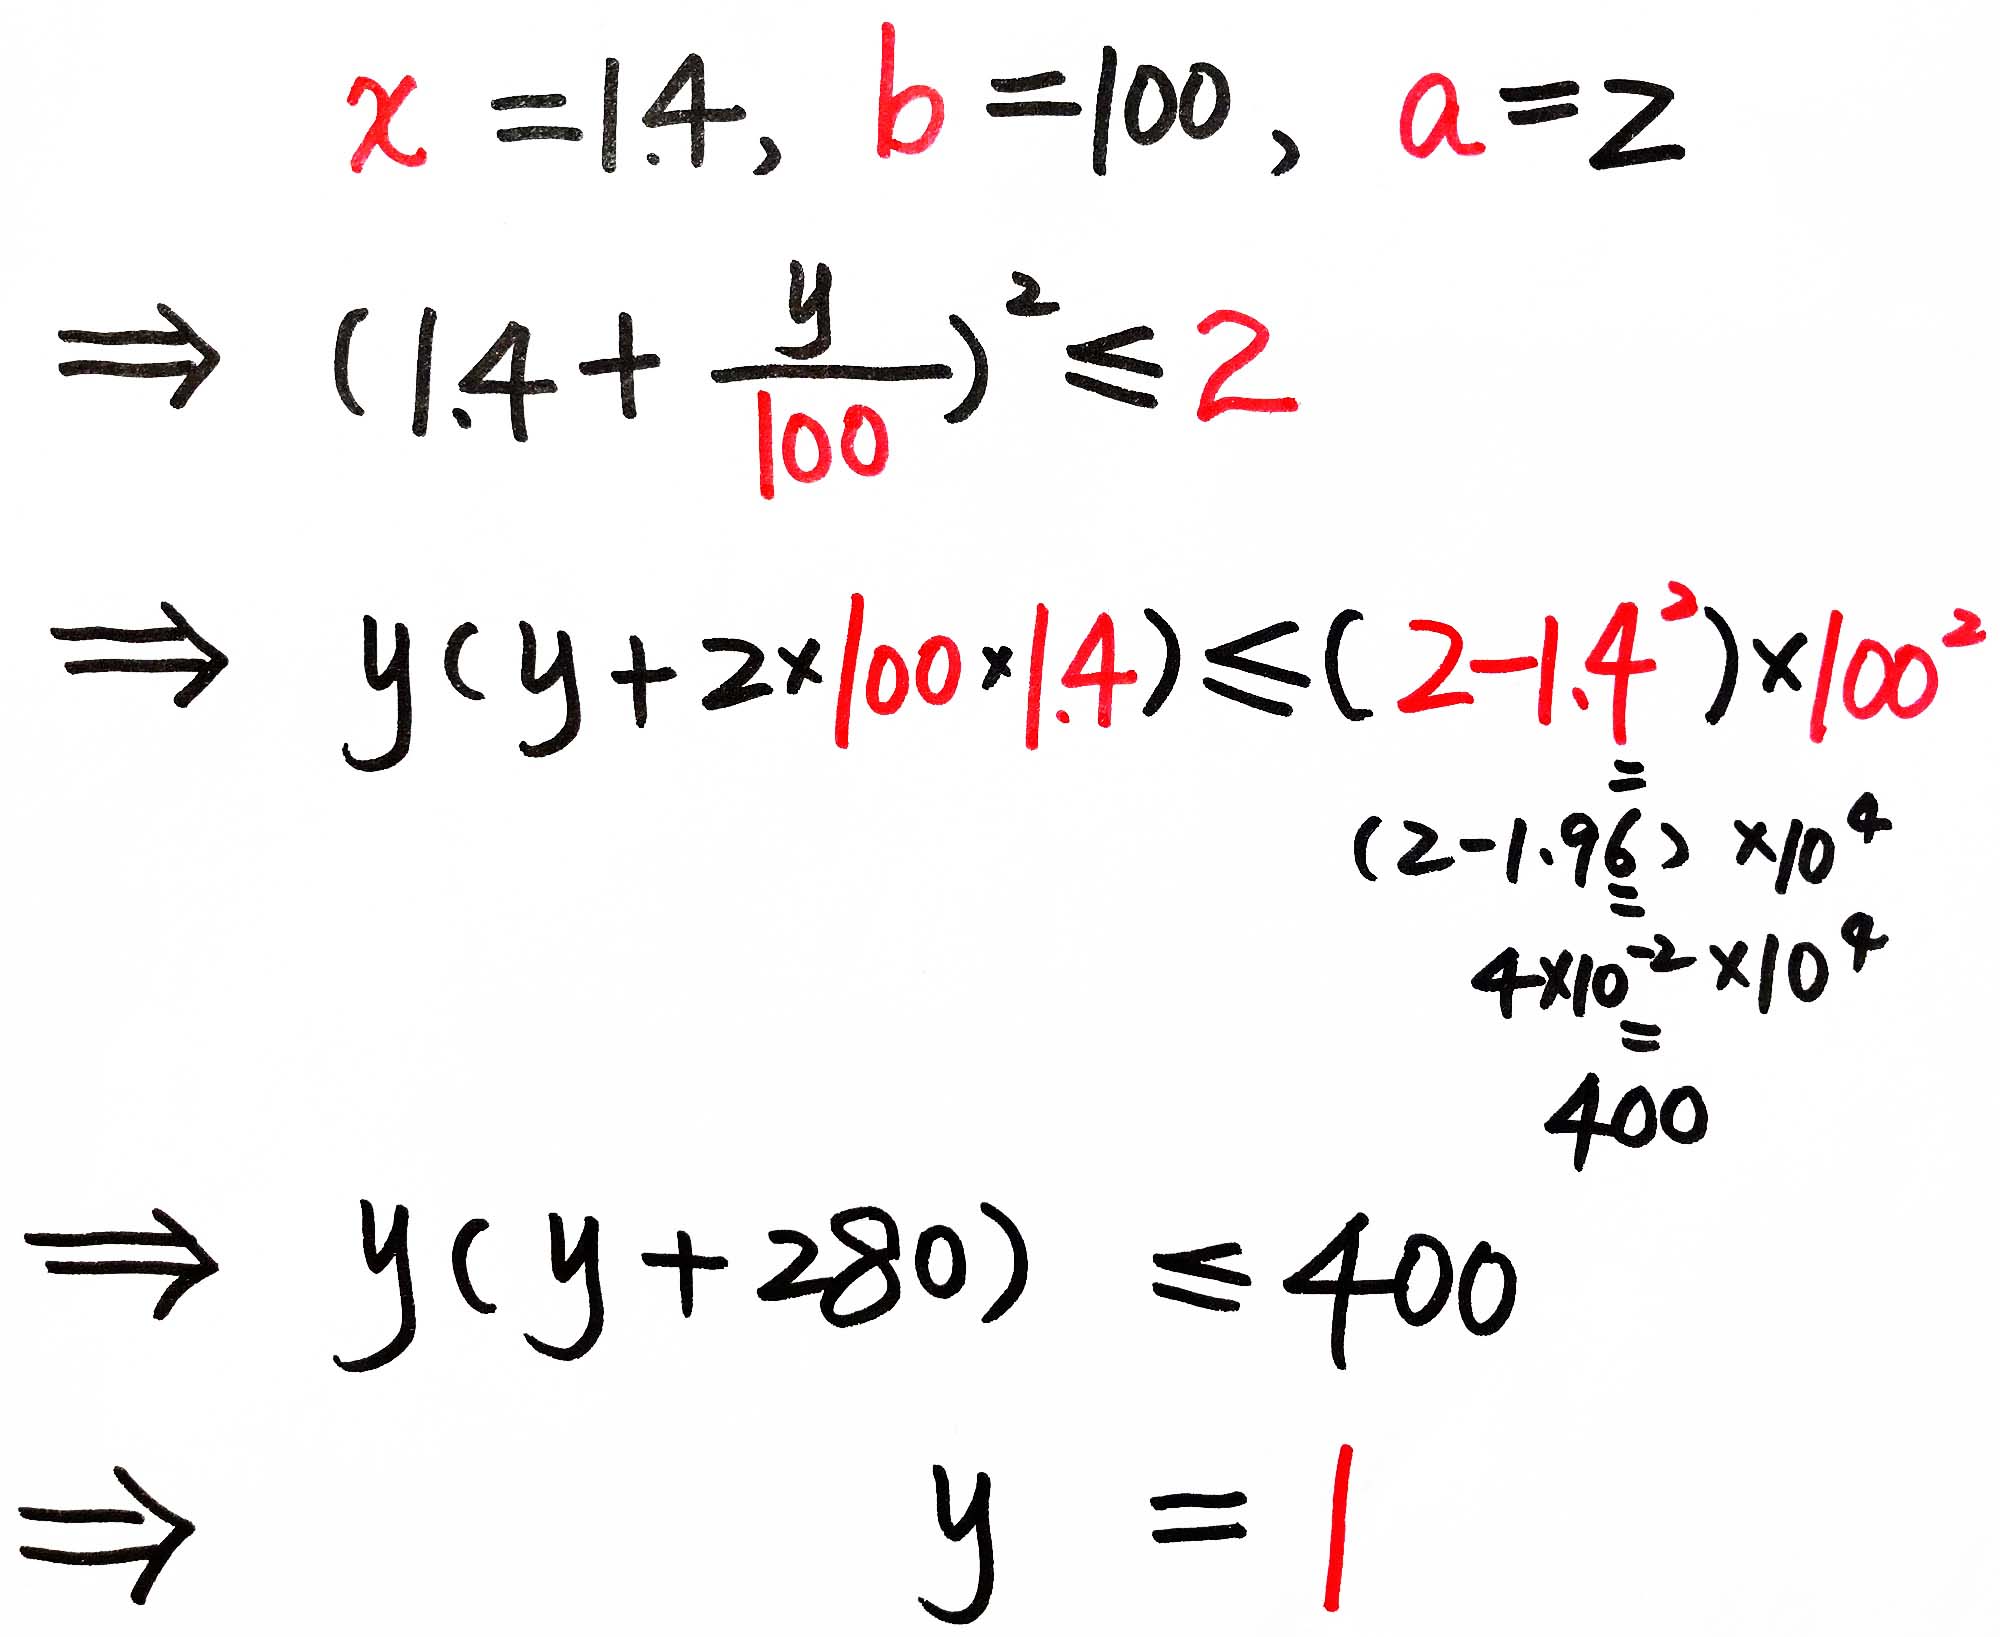 x = 1.4, b = 100, a = 2
⇒ (1.4 + y/100)² ≤ 2
⇒ y(y + 2×100×1.4) ≤ (2-1.4²)×100²
=
(2-1.96)×10⁴
=
4×10⁻²×10⁴
=
400
⇒ y(y + 280) ≤ 400
⇒ y = 1